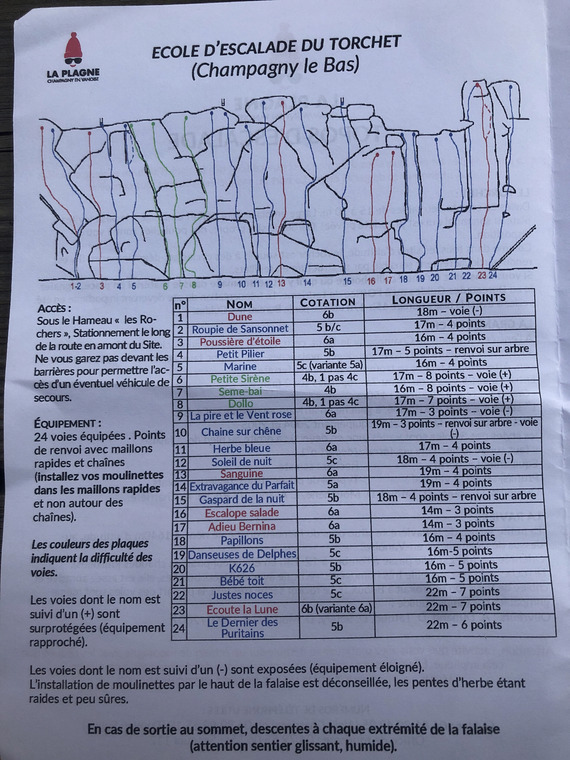 LA PLAGNE
CHAMPAGNY EN VANOISE
ECOLE D'ESCALADE DU TORCHET
(Champagny le Bas)
1-2 3 4 5 6 7 8 9 10 11 12 13 14 15 16 17 18 19 20 21 22 23 24
Accès :
Sous le Hameau « les Ro-
chers », Stationnement le long
de la route en amont du Site.
Ne vous garez pas devant les
barrières pour permettre l'ac-
cès d'un éventuel véhicule de
secours.
ÉQUIPEMENT :
24 voies équipées . Points
de renvoi avec maillons
rapides et chaînes
(installez vos moulinettes
dans les maillons rapides
et non autour des
chaînes).
Les couleurs des plaques
indiquent la difficulté des
voies.
Les voies dont le nom est
suivi d'un (+) sont
surprotégées (équipement
rapproché).
n° NOM COTATION LONGUEUR / POINTS
1 Dune 6b 18m – voie (-)
2 Roupie de Sansonnet 5 b/c 17m – 4 points
3 Poussière d'étoile 6a 16m – 4 points
4 Petit Pilier 5b 17m – 5 points – renvoi sur arbre
5 Marine 5c (variante 5a) 16m – 4 points
6 Petite Sirène 4b, 1 pas 4c 17m – 8 points – voie (+)
7 Seme-bai 4b 16m – 8 points – voie (+)
8 Dollo 4b, 1 pas 4c 17m – 7 points – voie (+)
9 La pire et le Vent rose 6a 17m – 3 points – voie (-)
10 Chaine sur chêne 5b 19m – 3 points – renvoi sur arbre - voie
(-)
11 Herbe bleue 6a 17m – 4 points
12 Soleil de nuit 5c 18m – 4 points – voie (-)
13 Sanguine 6a 19m – 4 points
14 Extravagance du Parfait 5a 19m – 4 points
15 Gaspard de la nuit 5b 18m – 4 points – renvoi sur arbre
16 Escalope salade 6a 14m – 3 points
17 Adieu Bernina 6a 14m – 3 points
18 Papillons 5b 16m – 4 points
19 Danseuses de Delphes 5c 16m-5 points
20 K626 5b 16m – 5 points
21 Bébé toit 5c 16m – 5 points
22 Justes noces 5c 22m – 7 points
23 Ecoute la Lune 6b (variante 6a) 22m – 7 points
24 Le Dernier des
Puritains 5b 22m – 6 points
Les voies dont le nom est suivi d'un (-) sont exposées (équipement éloigné).
L'installation de moulinettes par le haut de la falaise est déconseillée, les pentes d'herbe étant
raides et peu sûres.
En cas de sortie au sommet, descentes à chaque extrémité de la falaise
(attention sentier glissant, humide).